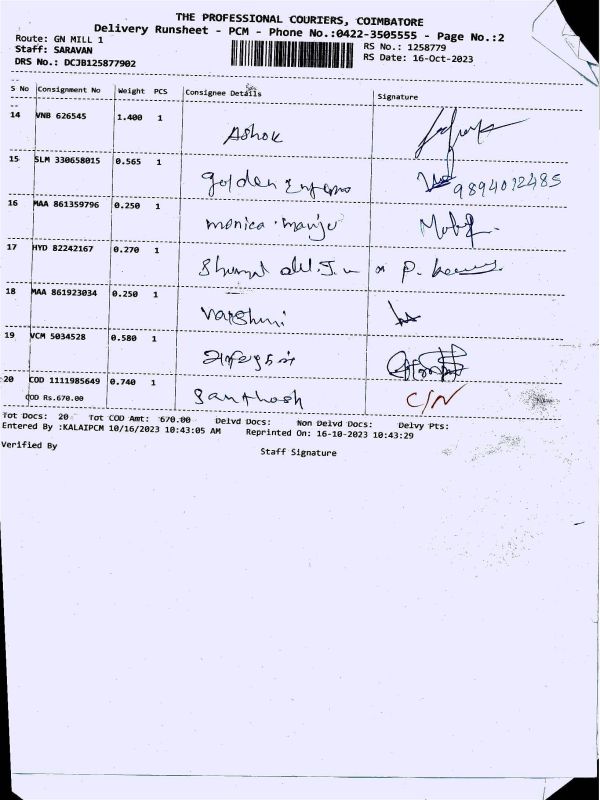 THE PROFESSIONAL COURIERS, COIMBATORE
Delivery Runsheet - PCM - Phone No.:0422-3505555 - Page No.:2
Route: GN MILL 1
Staff: SARAVAN
DRS No.: DCJB125877902
RS No.: 1258779
RS Date: 16-Oct-2023
S No Consignment No Weight PCS Consignee Details Signature
14 VNB 626545 1.400 1 Ashok
15 SLM 330658015 0.565 1 golden 9894012485
16 MAA 861359796 0.250 1 monica manju
17 HYD 82242167 0.270 1
18 MAA 861923034 0.250 1 Varshini
19 VCM 5034528 0.580 1
20 COD 1111985649 0.740 1 Santhosh C/N
COD Rs.670.00
Tot Docs: 20 Tot COD Amt: 670.00 Delvd Docs: Non Delvd Docs: Delvy Pts:
Entered By :KALAIPCM 10/16/2023 10:43:05 AM Reprinted On: 16-10-2023 10:43:29
Verified By
Staff Signature